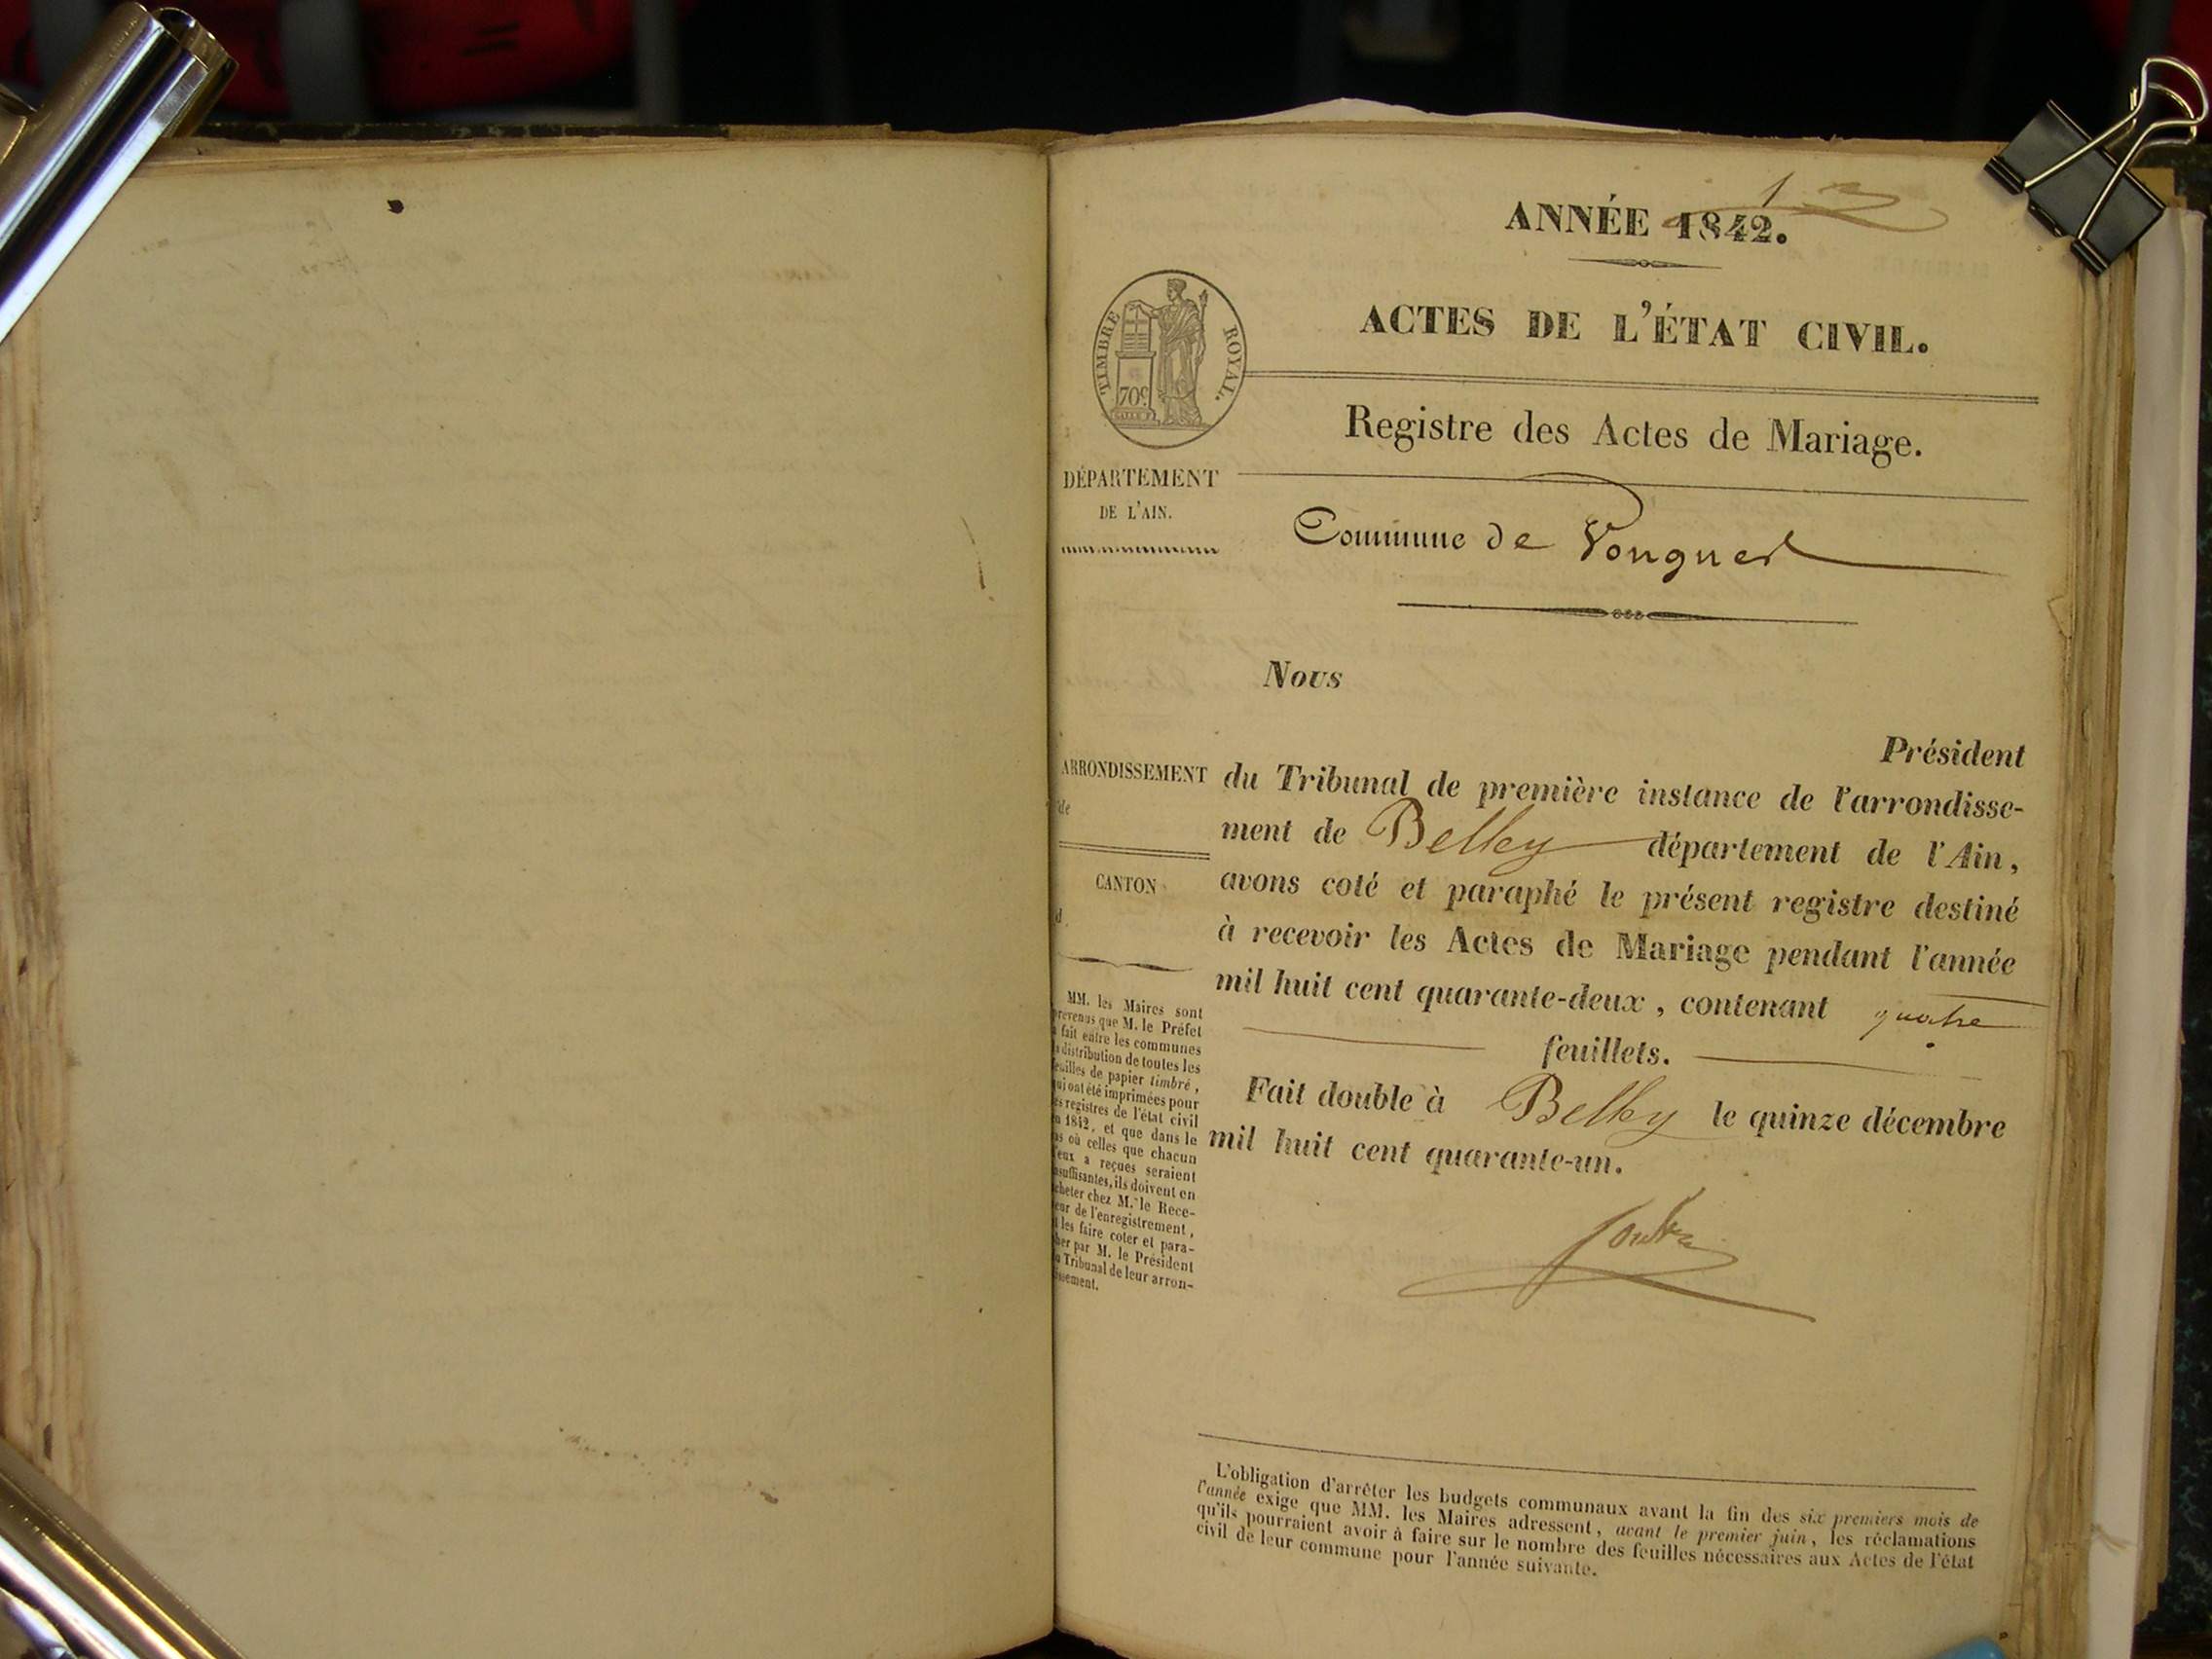 1
ANNÉE 1842.
ACTES DE L'ÉTAT CIVIL.
TIMBRE ROYAL.
70c
Registre des Actes de Mariage.
DÉPARTEMENT
DE L'AIN.
Commune de Vongnes
Nous
Président
ARRONDISSEMENT
de
CANTON
d
du Tribunal de première instance de l'arrondisse-
ment de Belley département de l'Ain,
avons coté et paraphé le présent registre destiné
à recevoir les Actes de Mariage pendant l'année
mil huit cent quarante-deux, contenant quatre
feuillets.
Fait double à Belley le quinze décembre
mil huit cent quarante-un.
MM. les Maires sont
prévenus que M. le Préfet
a fait entre les communes
la distribution de toutes les
feuilles de papier timbré,
qui ont été imprimées pour
les registres de l'état civil
en 1842, et que dans le
cas où celles que chacun
d'eux a reçues seraient
insuffisantes, ils doivent en
acheter chez M. le Rece-
veur de l'enregistrement,
et les faire coter et para-
pher par M. le Président
du Tribunal de leur arron-
dissement.
L'obligation d'arrêter les budgets communaux avant la fin des six premiers mois de
l'année exige que MM. les Maires adressent, avant le premier juin, les réclamations
qu'ils pourraient avoir à faire sur le nombre des feuilles nécessaires aux Actes de l'état
civil de leur commune pour l'année suivante.